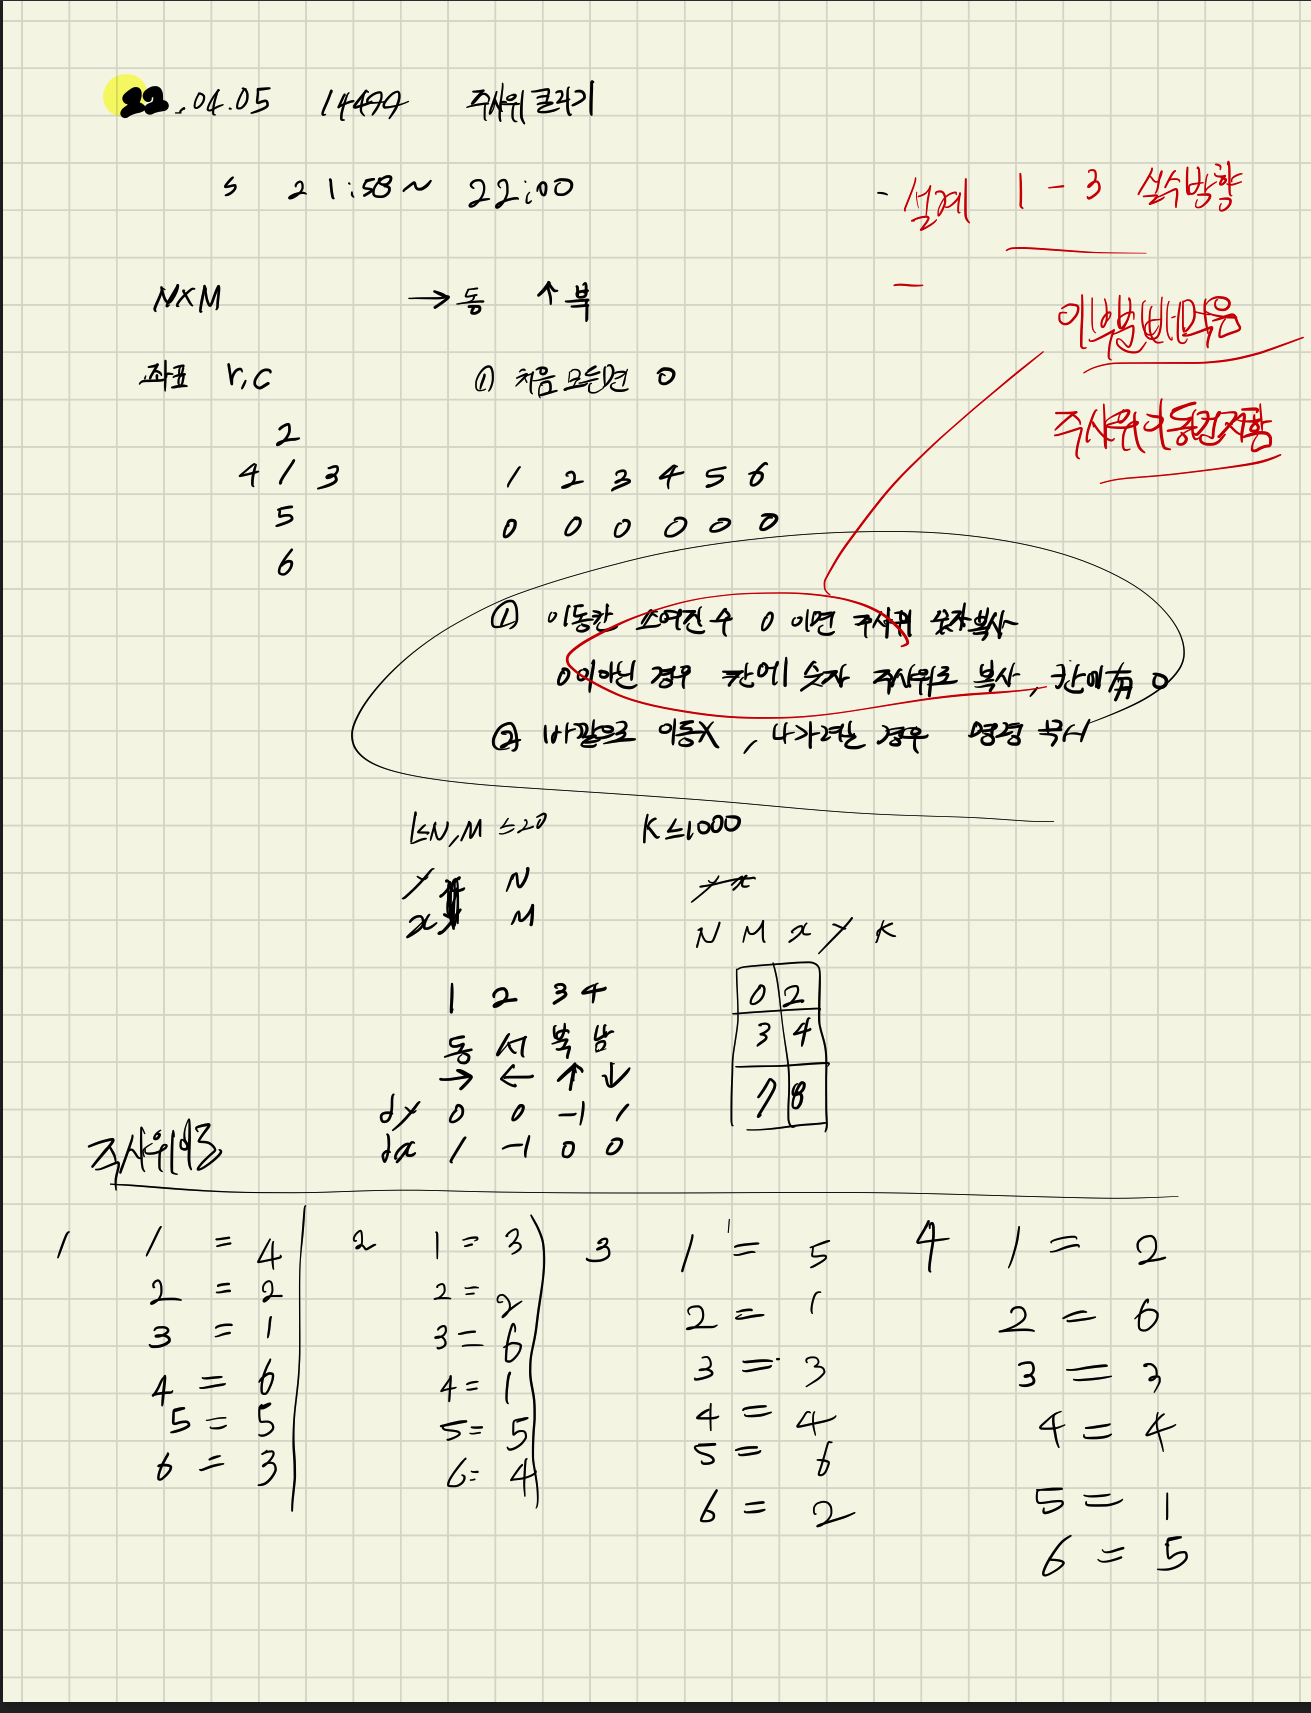 22.04.05 14499 주사위 굴리기
S 21:58 ~ 22:00
- 설계 1-3 실수방향
NXM → 동 ↑ 북
-
이부분빼먹음
좌표 r,c ① 처음 모든면 0
주사위이동먼저함
2
4 1 3
5
6
1 2 3 4 5 6
0 0 0 0 0 0
① 이동칸 쓰여진 수 0 이면 주사위 숫자복사
0이아닌 경우 칸에 숫자 주사위로 복사, 칸에有 0
② 바깥으로 이동X, 나가려는 경우 명령 무시
1≤N,M ≤20 K≤1000
y N
x M
y x
N M x y K
0 2
3 4
7 8
1 2 3 4
동 서 북 남
→ ← ↑ ↓
dy 0 0 -1 1
dx 1 -1 0 0
주사위이동
1
1 = 4
2 = 2
3 = 1
4 = 6
5 = 5
6 = 3
2
1 = 3
2 = 2
3 = 6
4 = 1
5 = 5
6 = 4
3
1 = 5
2 = 1
3 = 3
4 = 4
5 = 6
6 = 2
4
1 = 2
2 = 6
3 = 3
4 = 4
5 = 1
6 = 5